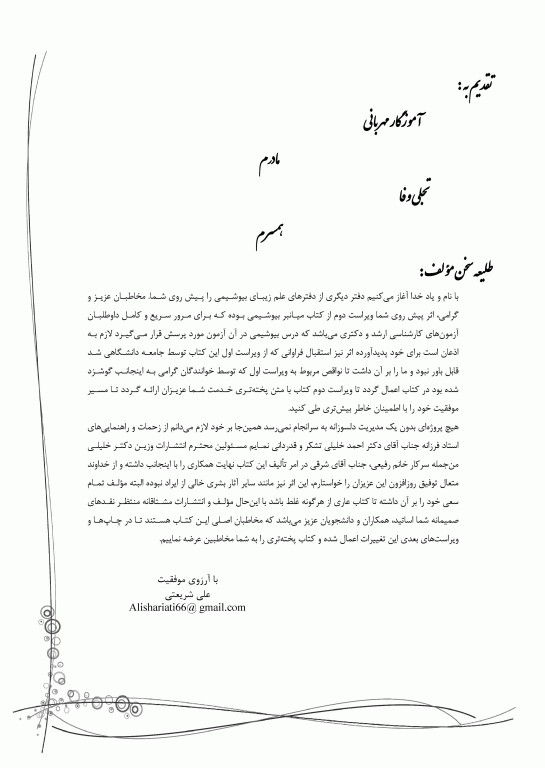 تقدیم به:
آموزگار مهربانی
مادرم
تجلی وفا
همسرم
طلیعه سخن مؤلف:
با نام و یاد خدا آغاز می‌کنیم دفتر دیگری از دفترهای علم زیبای بیوشیمی را پیش روی شما. مخاطبان عزیز و
گرامی، اثر پیش روی شما ویراست دوم از کتاب میانبر بیوشیمی بوده که برای مرور سریع و کامل داوطلبان
آزمون‌های کارشناسی ارشد و دکتری می‌باشد که درس بیوشیمی در آن آزمون مورد پرسش قرار می‌گیرد لازم به
اذعان است برای خود پدیدآورده اثر نیز استقبال فراوانی که از ویراست اول این کتاب توسط جامعه دانشگاهی شد
قابل باور نبود و ما را بر آن داشت تا نواقص مربوط به ویراست اول که توسط خوانندگان گرامی به اینجانب گوشزد
شده بود در کتاب اعمال گردد تا ویراست دوم کتاب با متن پخته‌تری خدمت شما عزیزان ارائه گردد تا مسیر
موفقیت خود را با اطمینان خاطر بیش‌تری طی کنید.
هیچ پروژه‌ای بدون یک مدیریت دلسوزانه به سرانجام نمی‌رسد همین‌جا بر خود لازم می‌دانم از زحمات و راهنمایی‌های
استاد فرزانه جناب آقای دکتر احمد خلیلی تشکر و قدردانی نمایم مسئولین محترم انتشارات وزین دکتر خلیلی
من‌جمله سرکار خانم رفیعی، جناب آقای شرقی در امر تألیف این کتاب نهایت همکاری را با اینجانب داشته و از خداوند
متعال توفیق روزافزون این عزیزان را خواستارم، این اثر نیز مانند سایر آثار بشری خالی از ایراد نبوده البته مؤلف تمام
سعی خود را بر آن داشته تا کتاب عاری از هرگونه غلط باشد با این‌حال مؤلف و انتشارات مشتاقانه منتظر نقدهای
صمیمانه شما اساتید، همکاران و دانشجویان عزیز می‌باشد که مخاطبان اصلی این کتاب هستند تا در چاپ‌ها و
ویراست‌های بعدی این تغییرات اعمال شده و کتاب پخته‌تری را به شما مخاطبین عرضه نماییم.
با آرزوی موفقیت
علی شریعتی
Alishariati66@gmail.com